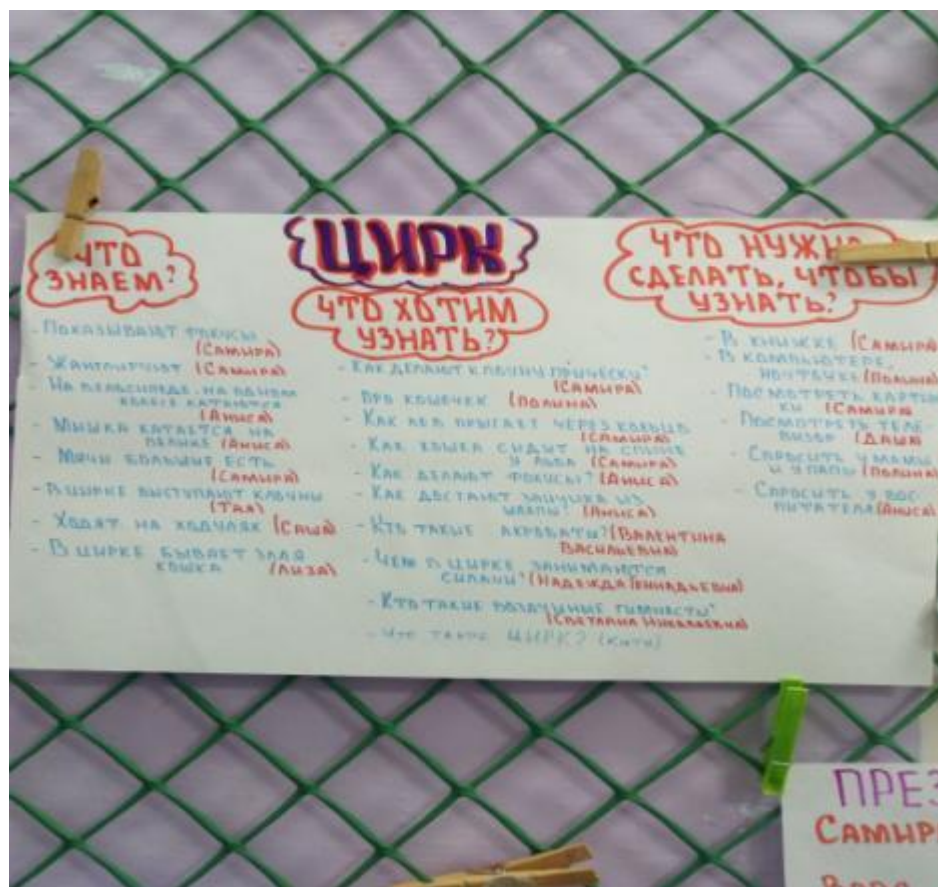 ЦИРК
ЧТО
ЗНАЕМ?
- Показывают фокусы
(Самира)
- Жонглируют (Самира)
- На велосипеде на одном
колесе катаются
(Аниса)
- Мишка катается на
(Аниса)
- Мячи большие есть
(Самира)
- В цирке выступают клоуны
(Тая)
- Ходят на ходулях (Саша)
- В цирке бывает злая
кошка (Лиза)
ЧТО ХОТИМ
УЗНАТЬ?
- Как делают клоуну прическу?
(Самира)
- Про кошечек (Полина)
- Как лев прыгает через кольцо
(Самира)
- Как кошка сидит на спине
у льва (Самира)
- Как делают фокусы? (Аниса)
- Как достают зайчика из
шляпы? (Аниса)
- Кто такие акробаты? (Валентина
Васильевна)
- Чем в цирке занимаются
силачи? (Надежда Геннадьевна)
- Кто такие воздушные гимнасты?
(Светлана Николаевна)
- Что такое ЦИРК? (Катя)
ЧТО НУЖНО
СДЕЛАТЬ, ЧТОБЫ
УЗНАТЬ?
- В книжке (Самира)
- В компьютере,
ноутбуке (Полина)
- Посмотреть картин
ки (Самира)
- Посмотреть теле-
визор (Даша)
- Спросить у мамы
и у папы (Полина)
- Спросить у вос-
питателя (Аниса)
ПРЕЗ
САМИР